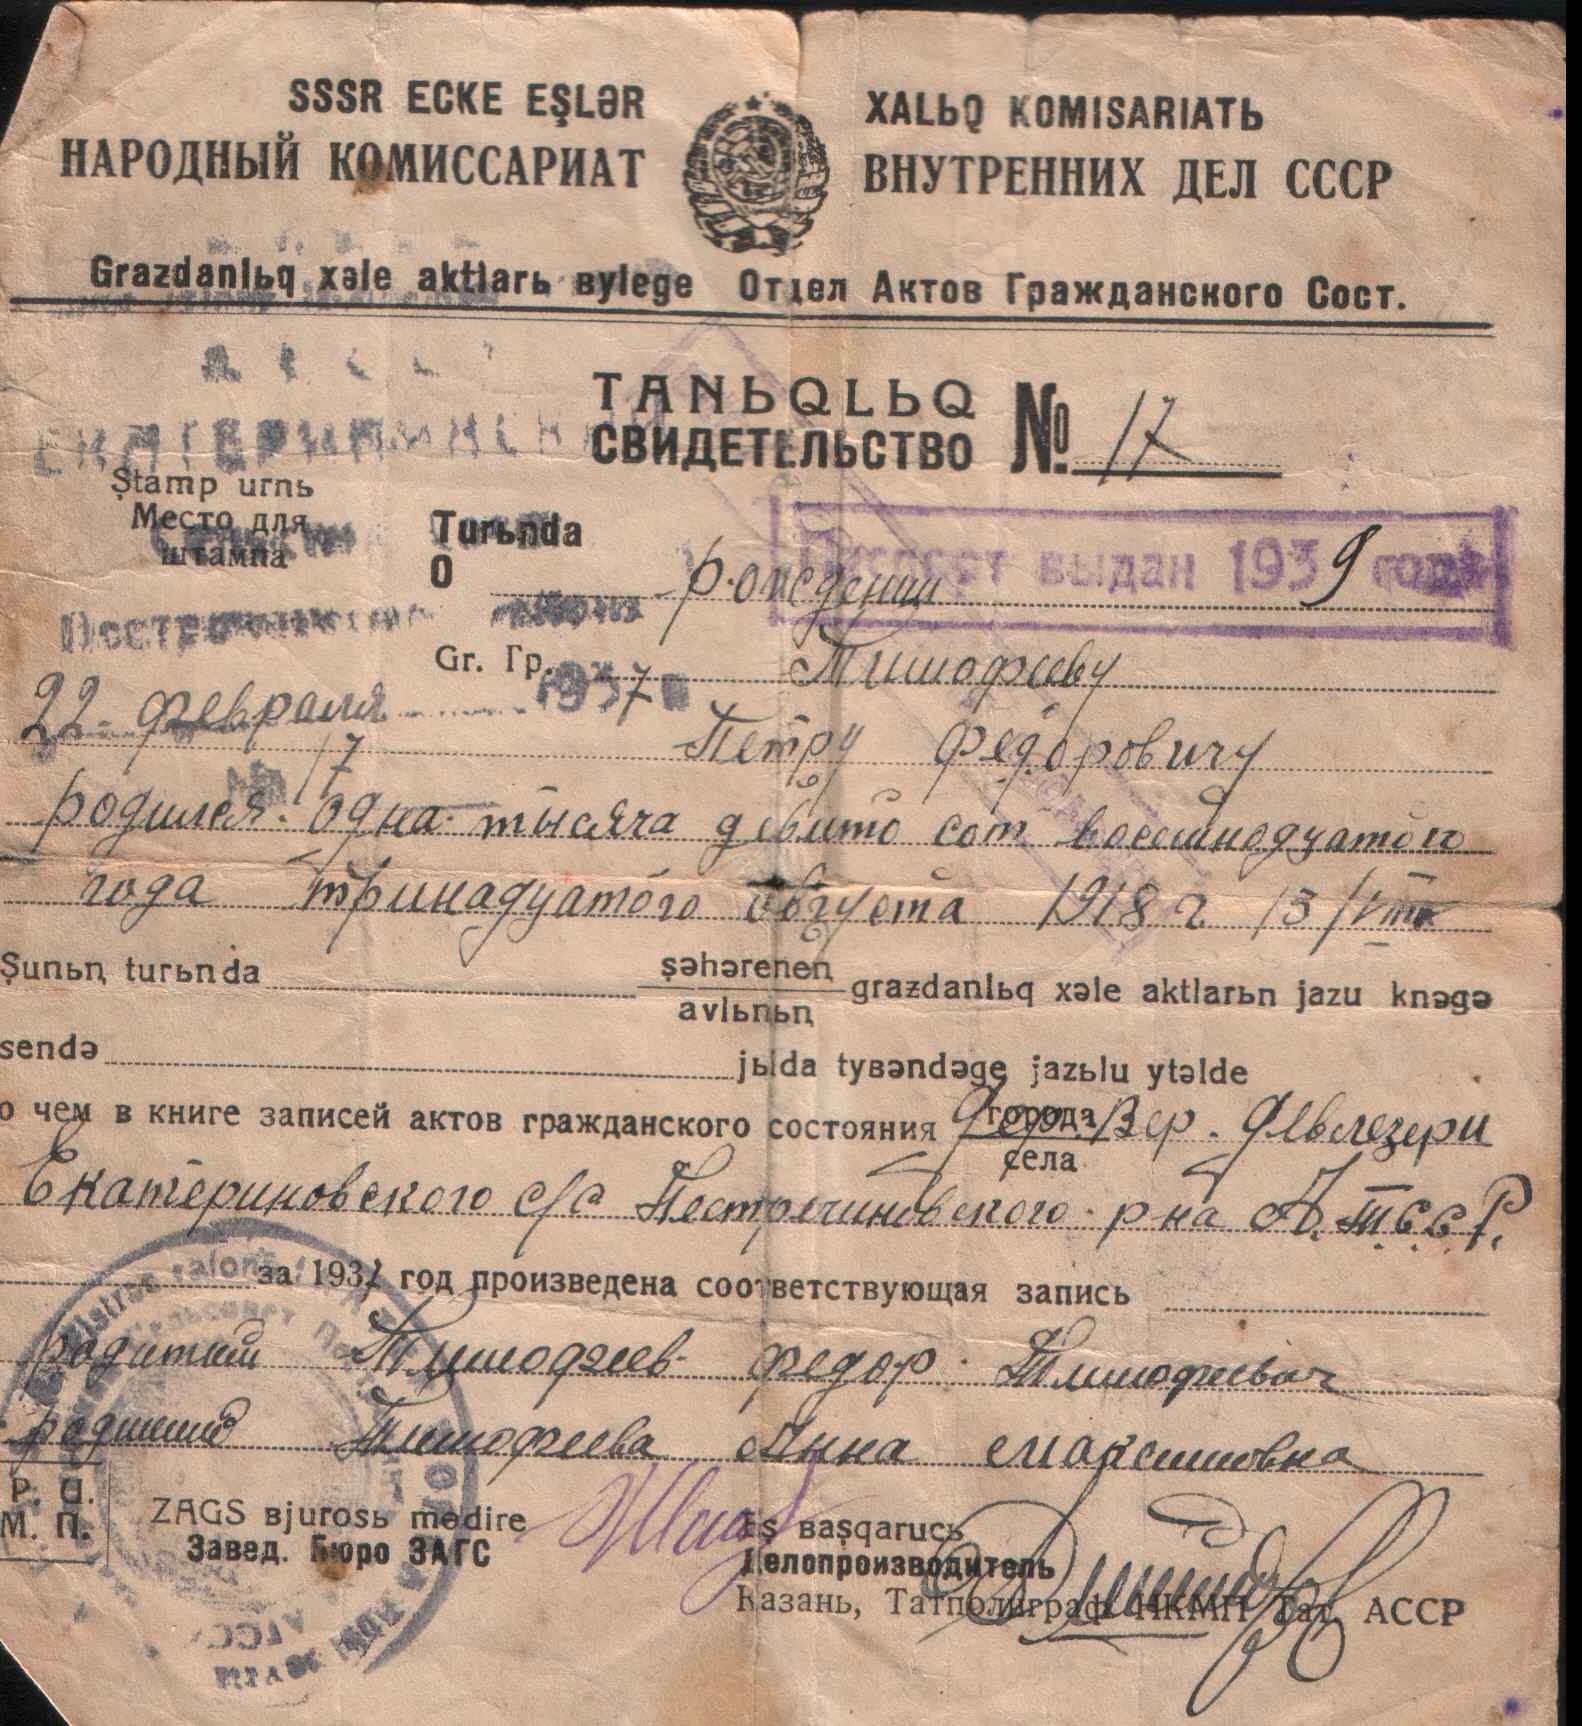 SSSR ECKE EŞLƏR XALЬQ KOMISARIATЬ
НАРОДНЫЙ КОМИССАРИАТ ВНУТРЕННИХ ДЕЛ СССР
Grazdanlьq xəle aktlarь вylege Отдел Актов Гражданского Сост.
TANЬQLЬQ
СВИДЕТЕЛЬСТВО № 17
ЕКАТЕРИНИНСКИЙ
Ştamp urnь
Место для
штампа
Turьnda
О рождении
Паспорт выдан 1939 года
Gr. Гр. Тимофееву
22 февраля 1937 г
№ 17
Петру Федоровичу
родился одна тысяча девято сот восемнодцатого
года тринадцатого августа 1918 г 13
Şunьꞑ turьnda şəhərenen grazdanlьq xəle aktlarьn jazu knəgə
avlьnьꞑ
sendə jьlda tyвəndəge jazьlu ytəlde
о чем в книге записей актов гражданского состояния города
села
дер. Вер. Девлезери
Екатериновского с/с Пестречиновского р на А.Т.С.С.Р.
за 1937 год произведена соответствующая запись
родители Тимофеев Федор Тимофеевич
Тимофеева Анна Максимовна
P. U.
М. П.
ZAGS вjurosь mɵdire
Завед. Бюро ЗАГС
Eş вaşqarucь
Делопроизводитель
Казань, Татполиграф НКМП Тат. АССР